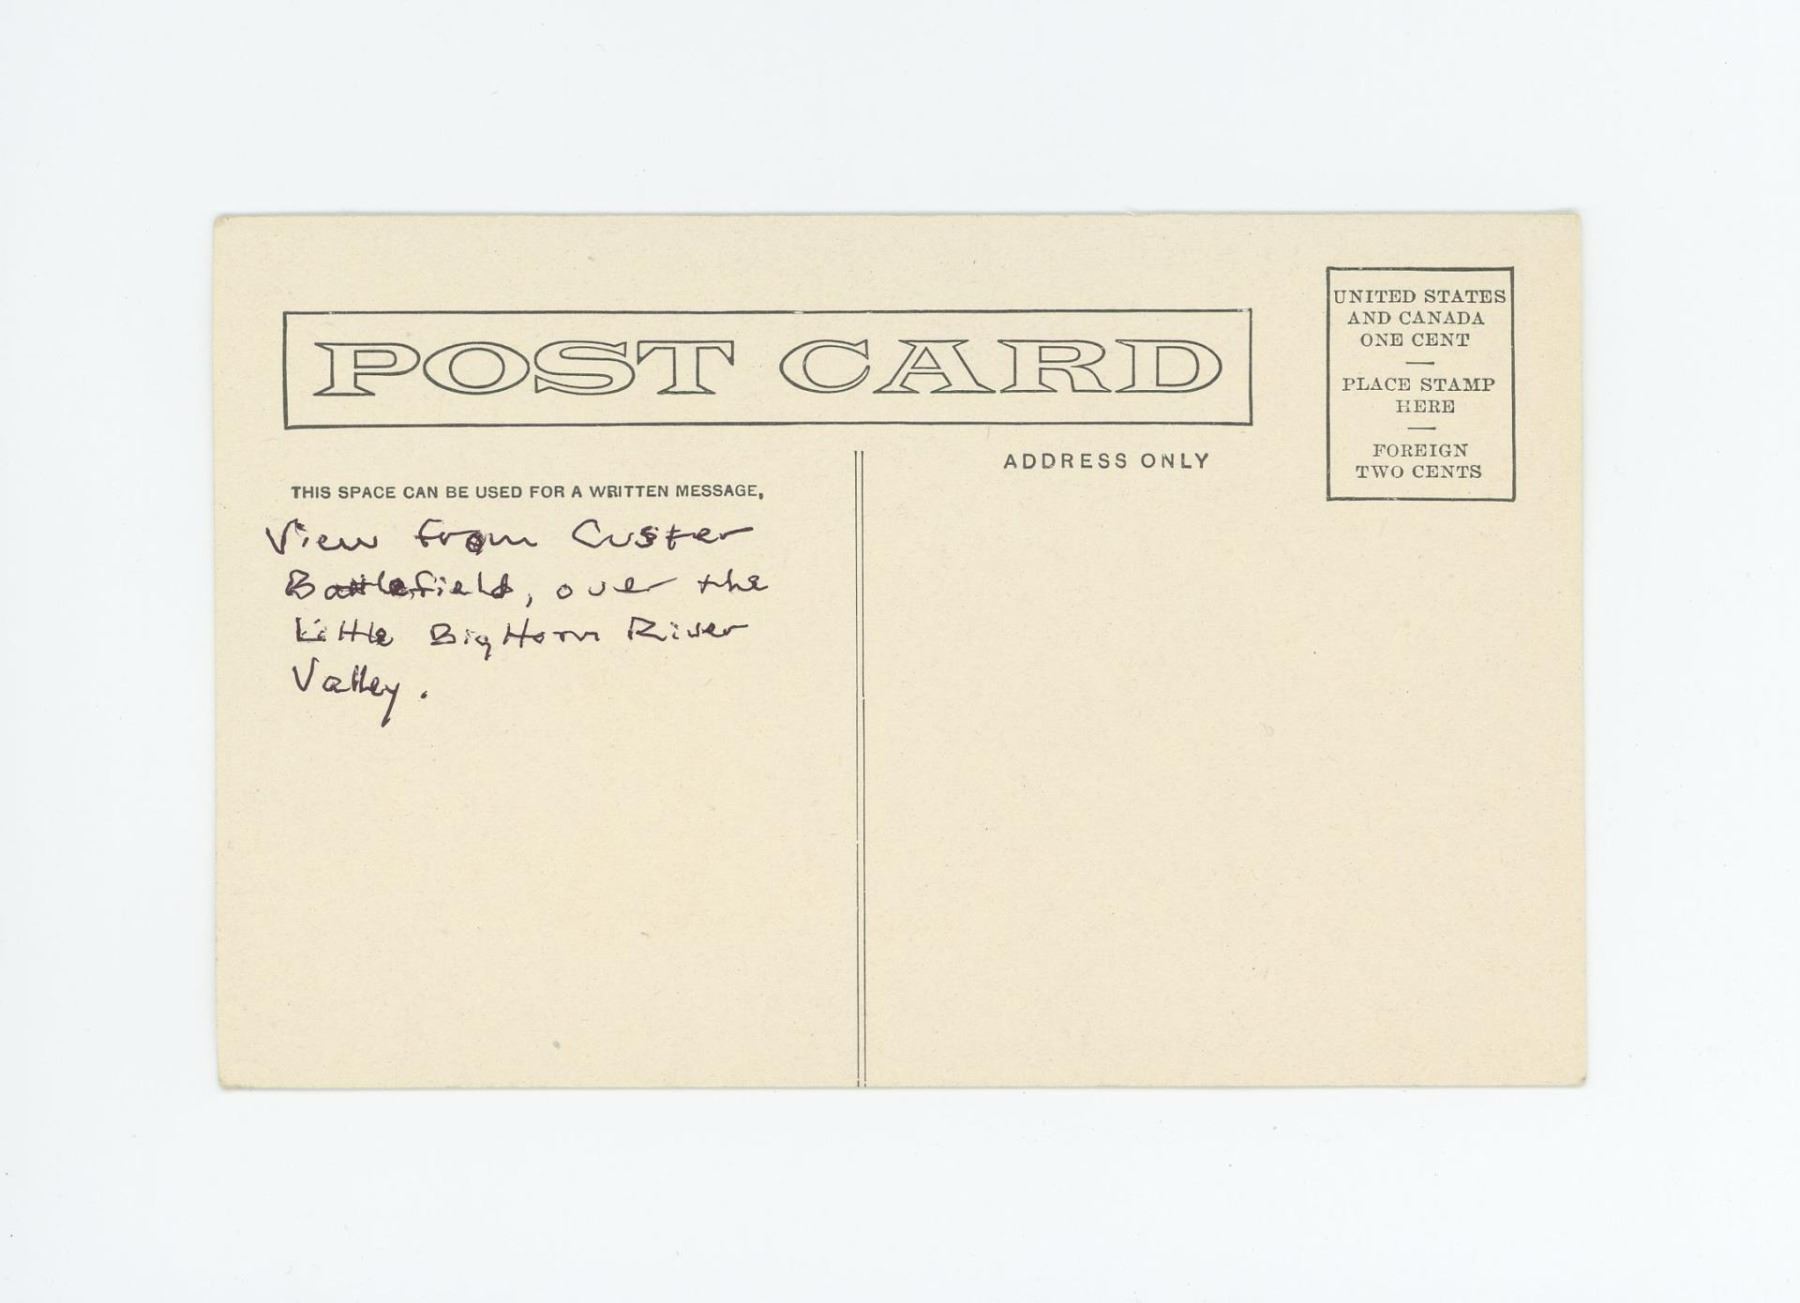 POST CARD
UNITED STATES
AND CANADA
ONE CENT
PLACE STAMP
HERE
FOREIGN
TWO CENTS
THIS SPACE CAN BE USED FOR A WRITTEN MESSAGE,
ADDRESS ONLY
View from Custer
Battlefield, over the
Little Big Horn River
Valley.